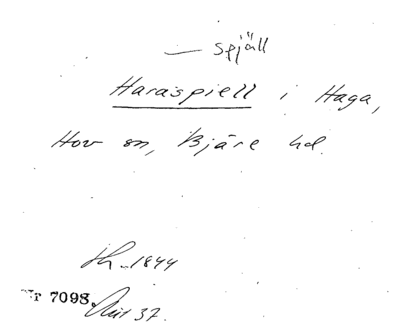 — spjäll
Haraspiell i Haga,
Hov sn, Bjäre hd.
1844
Nr 7098.
37.